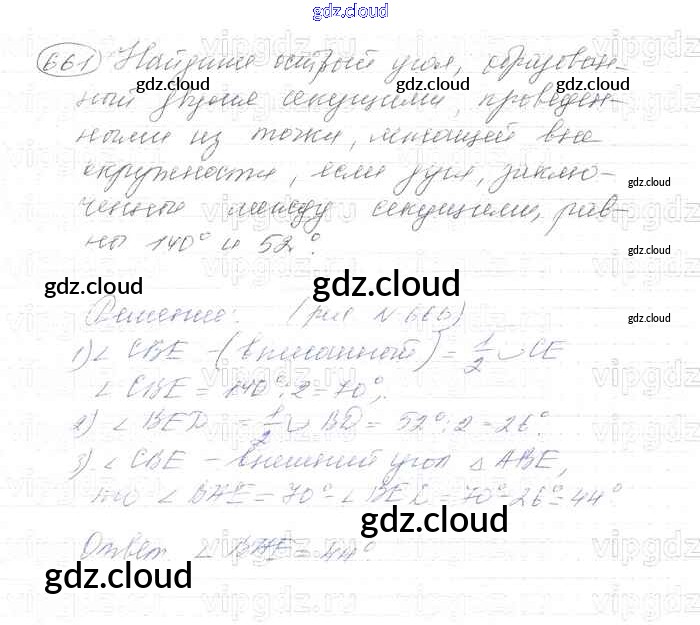 gdz.cloud
661 Найдите острый угол, образован-
ный двумя секущими, проведен-
ными из точки, лежащей вне
окружности, если дуги, заклю-
ченные между секущими, рав-
ны 140° и 52°.
Решение: (рис
1) ∠ CBE - (вписанный) = 1/2 ◡ CE
∠ CBE = 140° : 2 = 70°,
2) ∠ BED = 1/2 ◡ BD = 52° : 2 = 26°.
3) ∠ CBE - внешний угол △ ABE,
∠ BAE = 70° - ∠ BED = 70° - 26° = 44°
Ответ ∠ BAE = 44°.
gdz.cloud
gdz.cloud
gdz.cloud
gdz.cloud
gdz.cloud
gdz.cloud
gdz.cloud
gdz.cloud
gdz.cloud
gdz.cloud